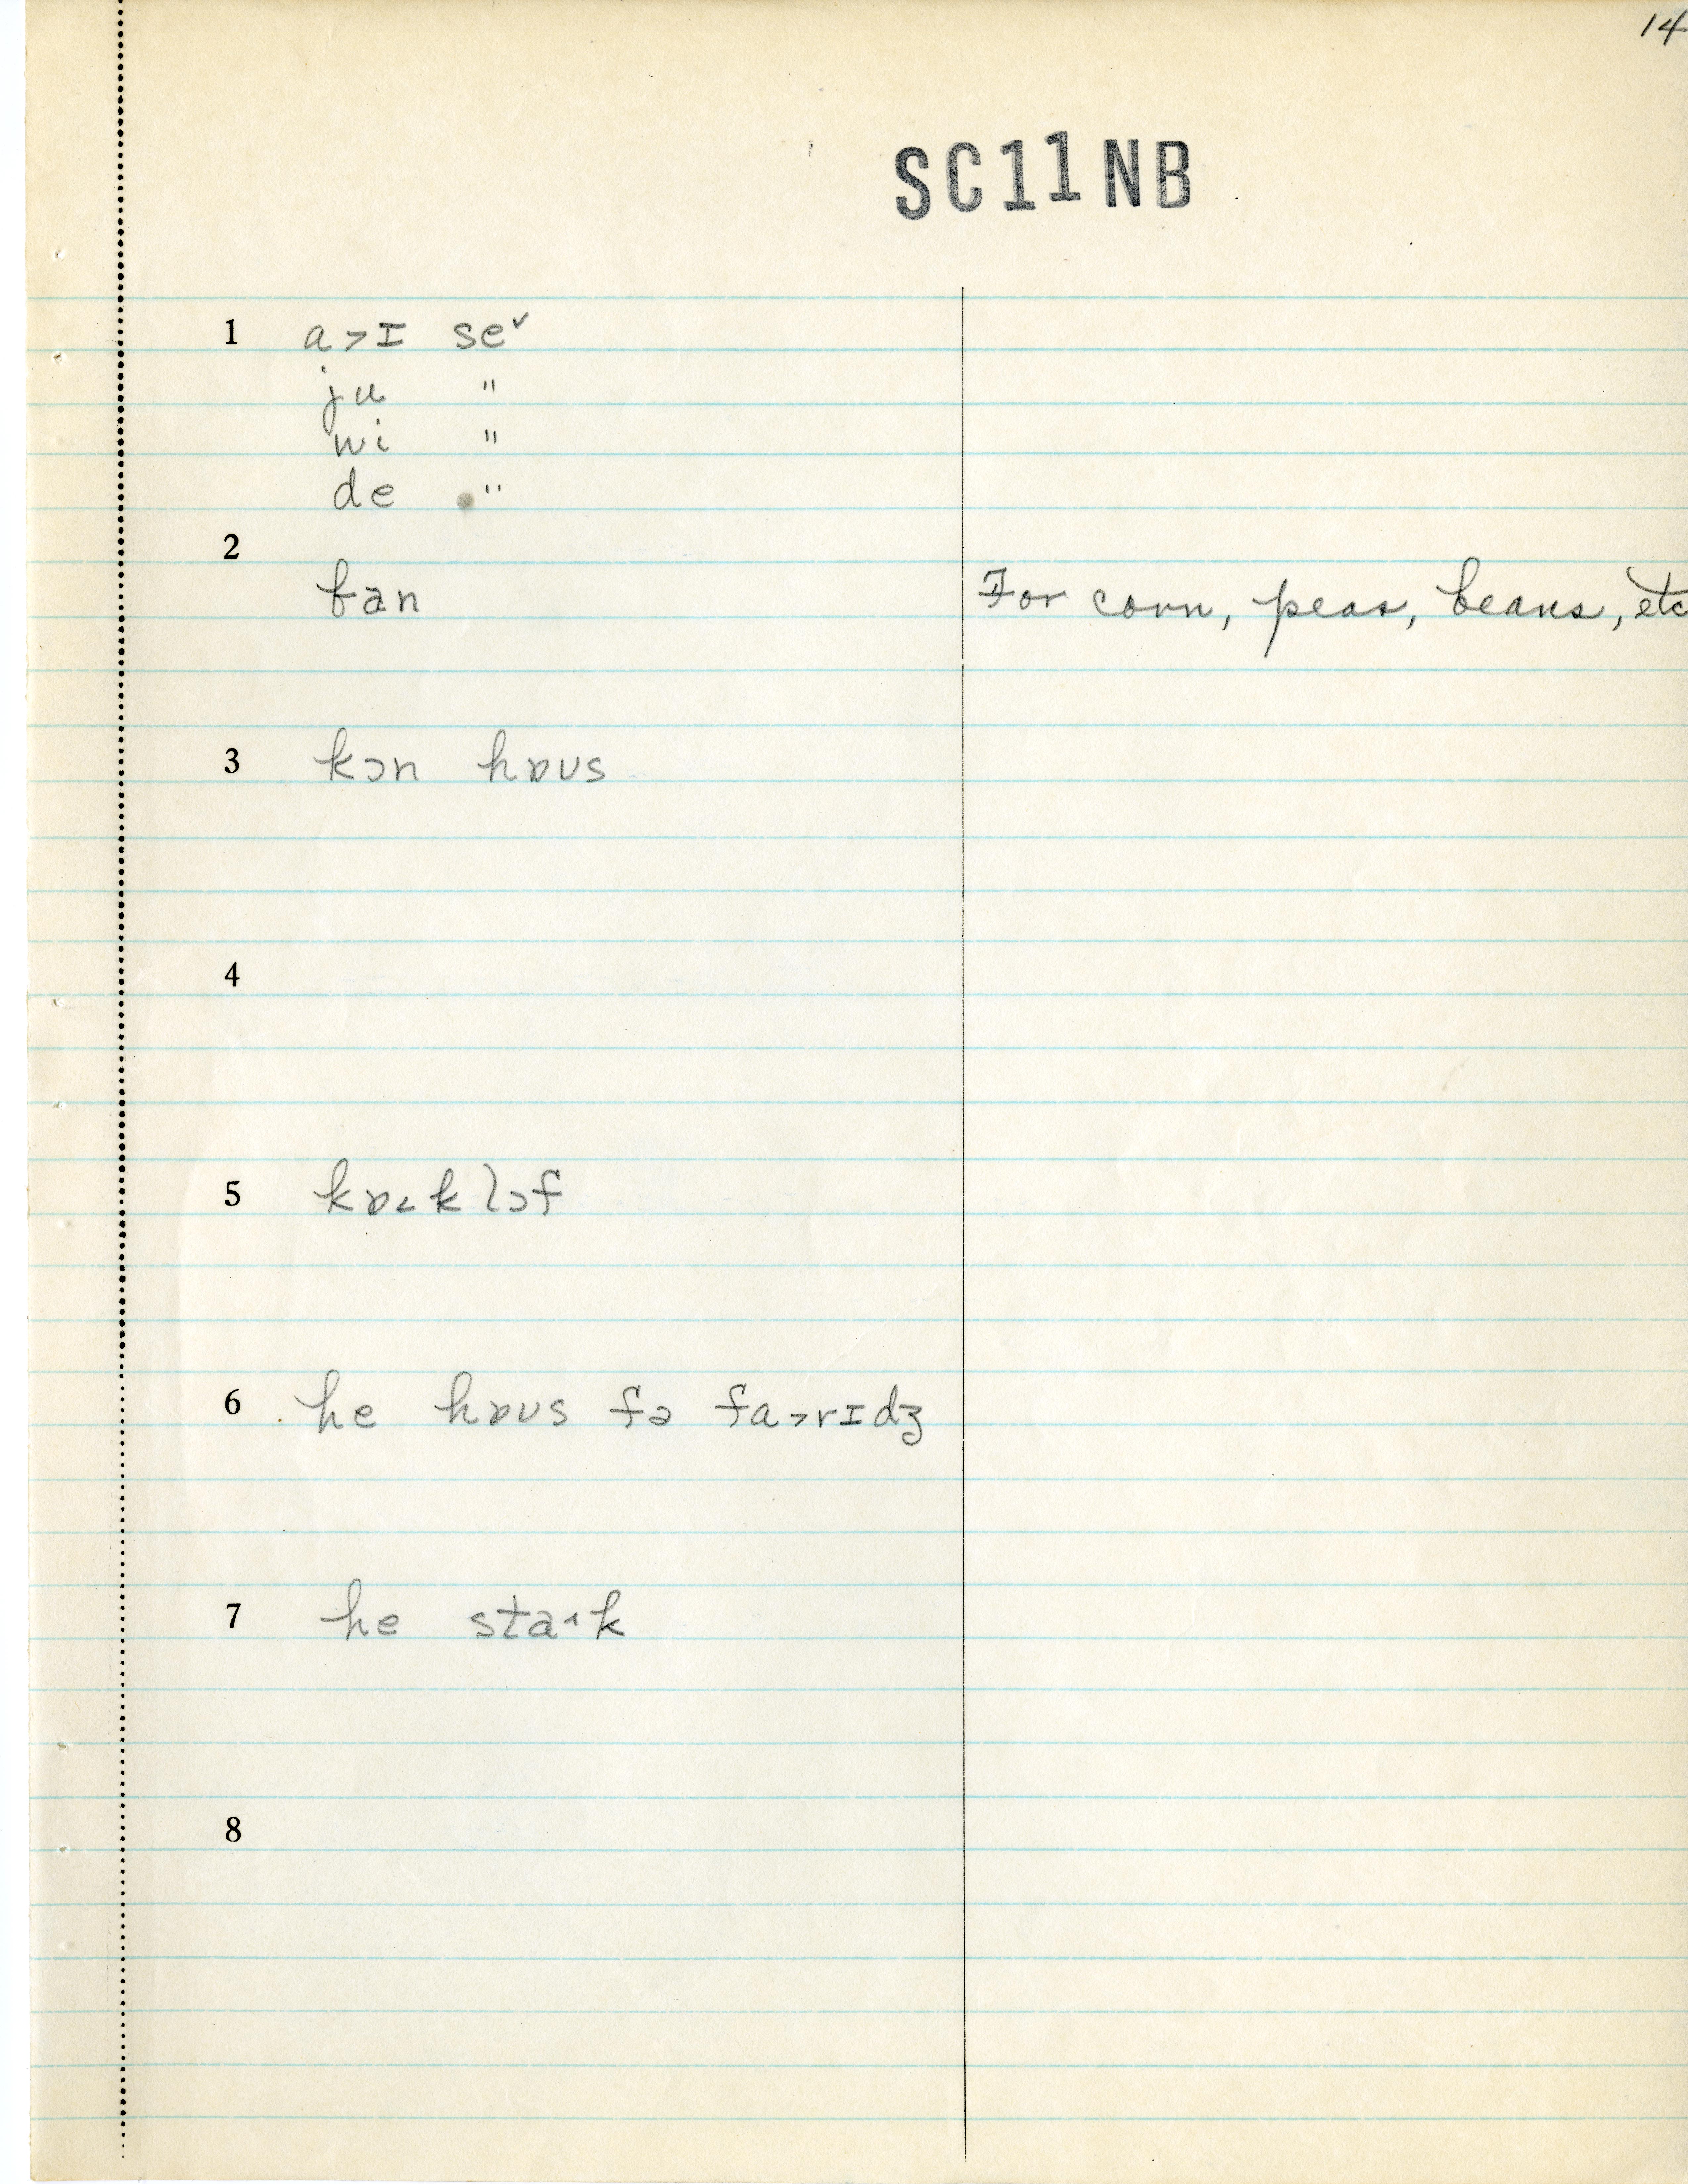 14
SC11NB
1 a>ɪ se˅
ju "
wi "
de "
2
ban For corn, peas, beans, etc
3 kɔn hɒʊs
4
5 kɒ<k lɔf
6 he hɒʊs fə fa>rɪdʒ
7 he sta^k
8